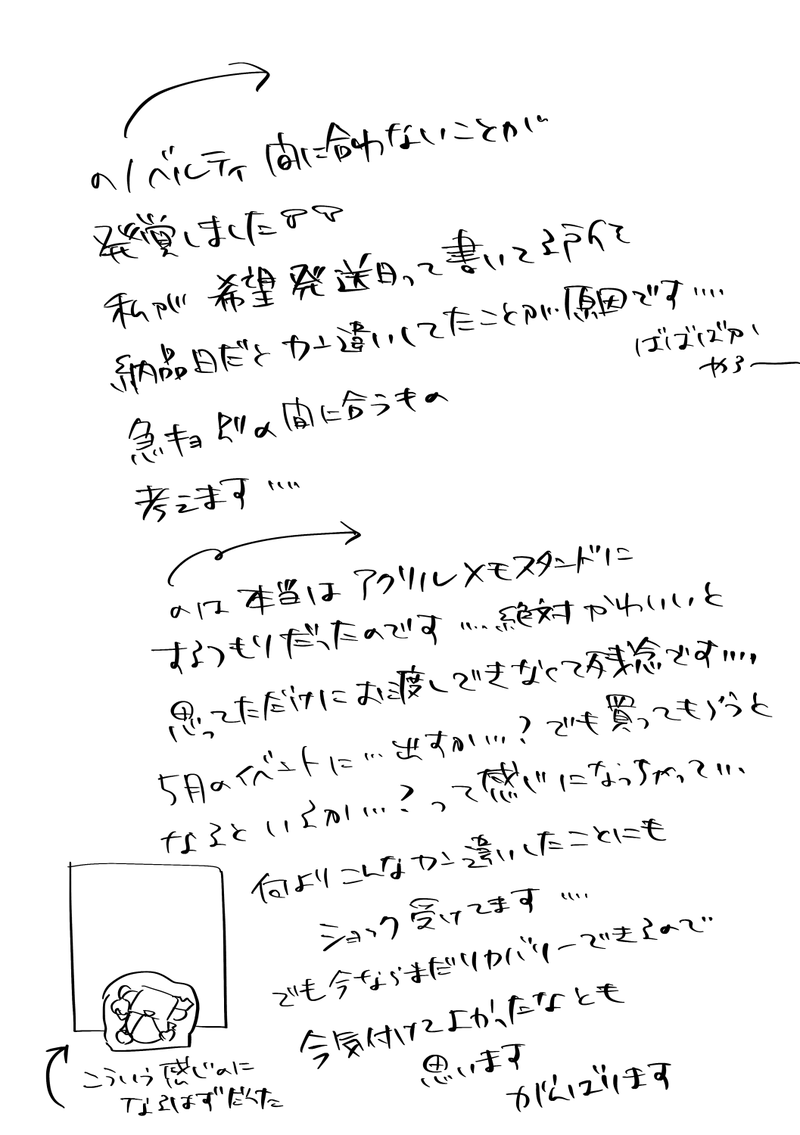 のノベルティ 間に合わないことが
発覚しました
私が 希望発送日って書いてる所を
納品日だとカン違いしてたことが原因です‥‥
ばばばか
やろー
急キョ 別の間に合うもの
考えます‥‥
のは 本当は アクリルメモスタンドに
するつもりだったのです‥‥絶対かわいいと
思ってただけにお渡しできなくて残念です‥‥
5月のイベントに…出すか…?でも買ってもらうと
なるといるか…?って感じになっちゃって…
何よりこんなカン違いしたことにも
ショック受けてます‥‥
でも今ならまだリカバリーできるので
今気付けてよかったなとも
思います
がんばります
こういう感じのに
なるはずだった